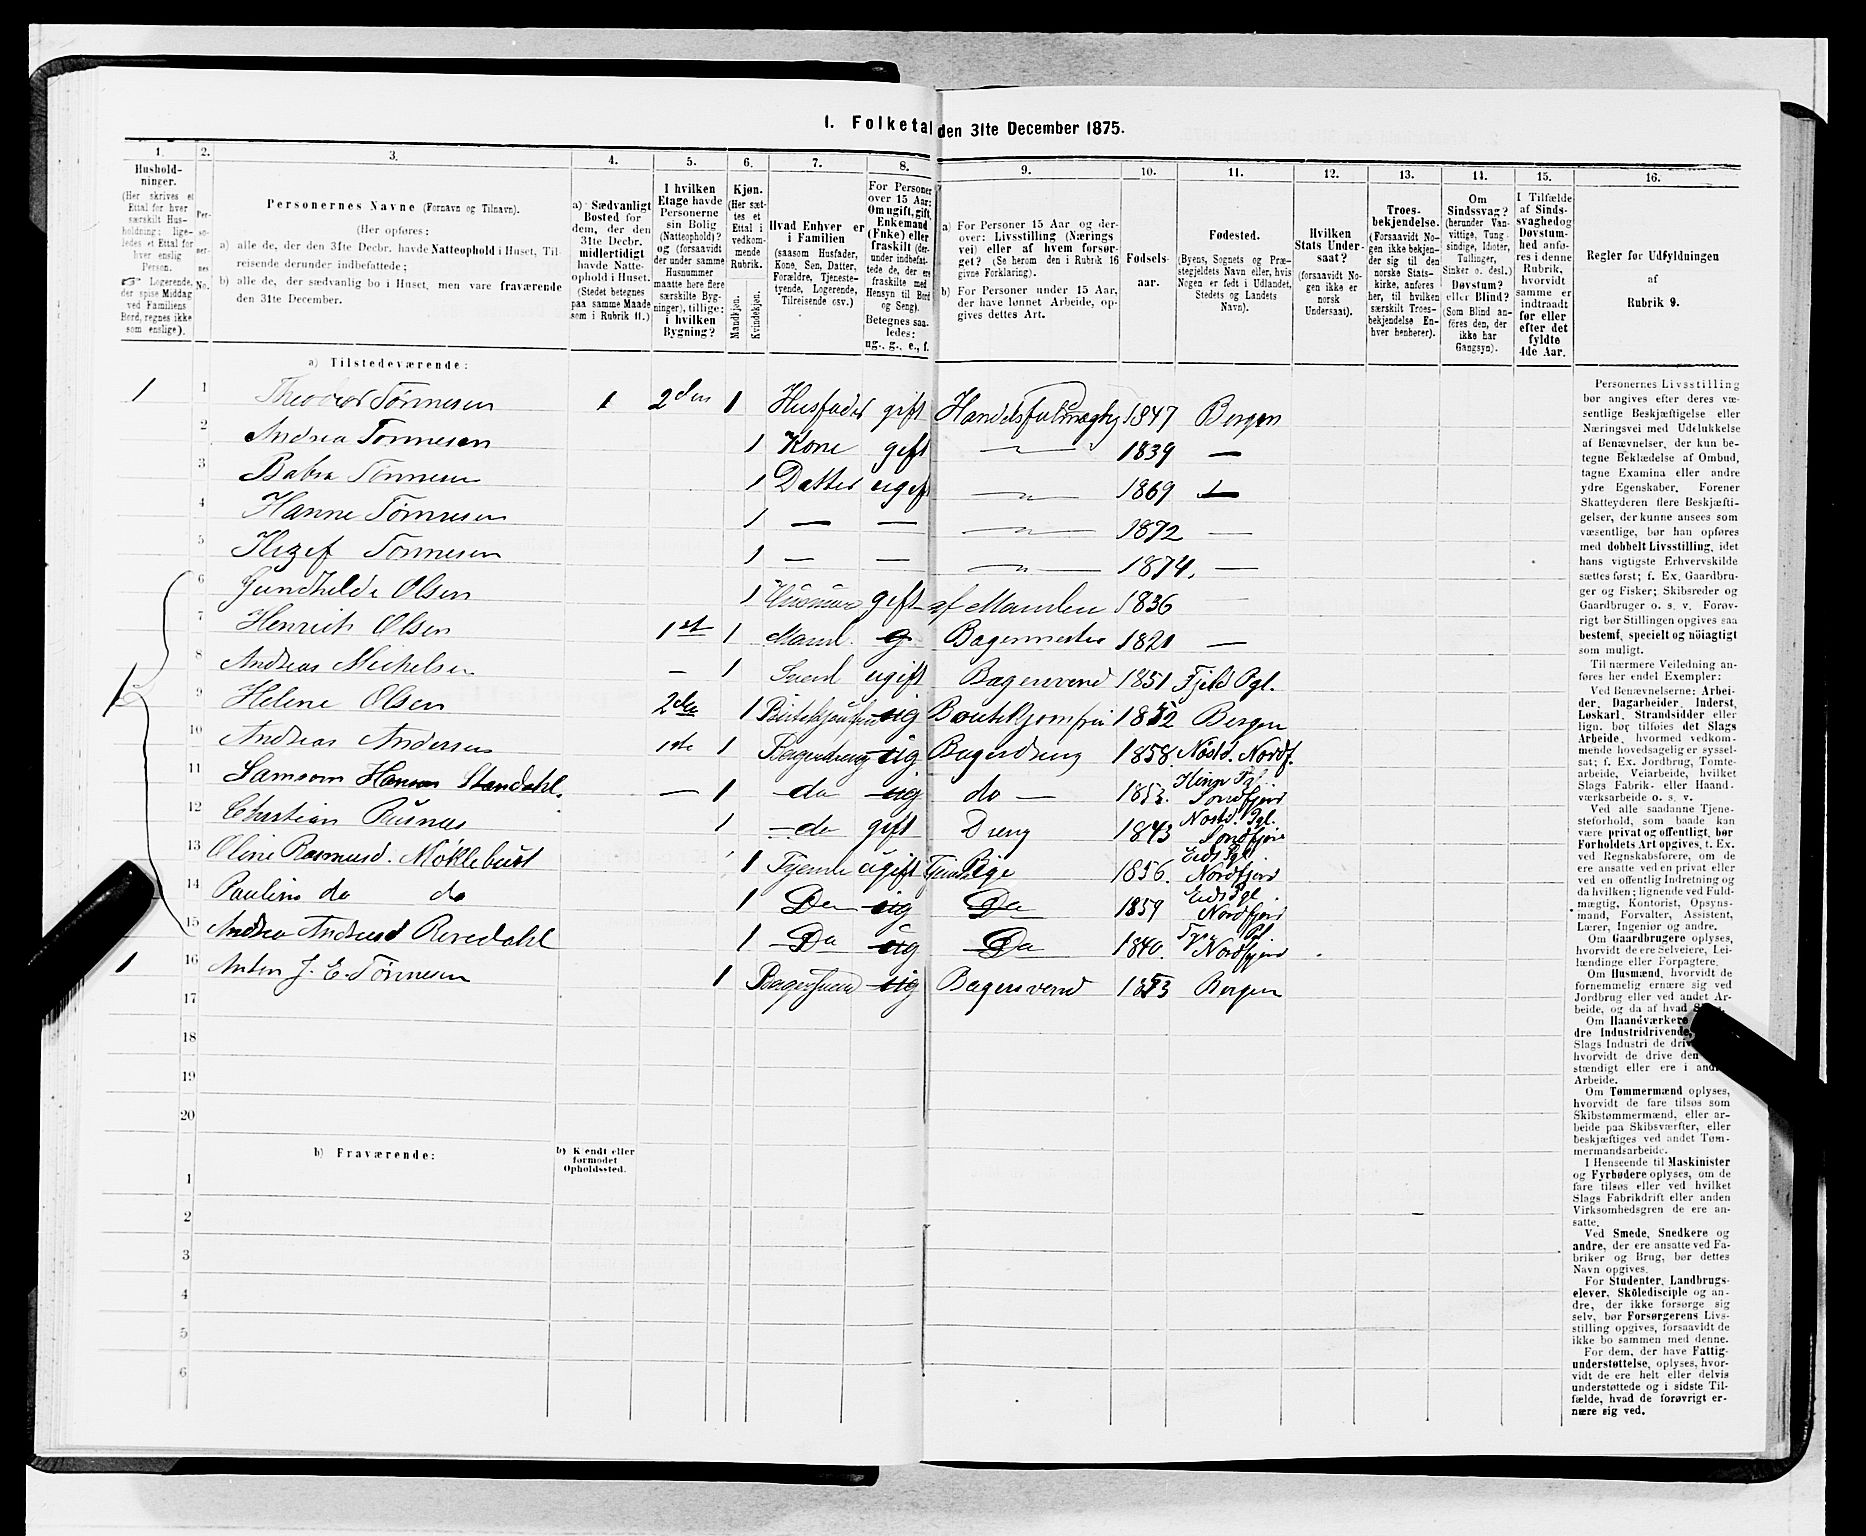 1. Folketal den 31te December 1875.
1. 2. 3. 4. 5. 6. 7. 8. 9. 10. 11. 12. 13. 14. 15. 16.
Hushold-
ninger.
(Her skrives et
Ettal for hver
særskilt Hus-
holdning; lige-
ledes et Ettal for
hver enslig
Person.
☞ Logerende,
der spise Middag
ved Familiens
Bord, regnes ikke
som enslige).
Per-
so-
ner-
nes
No.
Personernes Navne (Fornavn og Tilnavn).
(Her opføres:
a) alle de, der den 31te Decbr. havde Natteophold i Huset, Til-
reisende derunder indbefattede;
b) alle de, der sædvanlig bo i Huset, men vare fraværende
den 31te December.
a) Sædvanligt
Bosted for
dem, der den
31te Decbr.
midlertidigt
havde Natte-
ophold i Huset.
(Stedet betegnes
paa samme Maade
som i Rubrik 11.)
I hvilken
Etage havde
Personerne
sin Bolig
(Natteophold)?
og (forsaavidt
der under samme
Husnummer
maatte høre flere
særskilte Byg-
ninger), tillige:
i hvilken
Bygning?
Kjøn.
(Her sæt-
tes et
Ettal i
vedkom-
mende
Rubrik.
Mandkjøn.
Kvindekjøn.
Hvad Enhver er
i Familien
(saasom Husfader,
Kone, Søn, Datter,
Forældre, Tjeneste-
tyende, Logerende,
Tilreisende osv.)
For Personer
over 15 Aar:
Om ugift, gift,
Enkemand
(Enke) eller
fraskilt (der-
under indbefat-
tede de, der ere
fraskilte med
Hensyn til Bord
og Seng).
Betegnes saa-
ledes:
ug., g., e., f.
a) For Personer 15 Aar og der-
over: Livsstilling (Nærings-
vei) eller af hvem forsør-
get? (Se herom den i Rubrik 16
givne Forklaring).
b) For Personer under 15 Aar,
der have lønnet Arbeide, op-
gives dettes Art.
Fødsels-
aar.
Fødested.
(Byens, Sognets og Præ-
stegjeldets Navn eller, hvis
Nogen er født i Udlandet,
Stedets og Landets
Navn).
Hvilken
Stats Under-
saat?
(forsaavidt No-
gen ikke er
norsk
Undersaat).
Troes-
bekjendelse.
(Forsaavidt No-
gen ikke bekjen-
der sig til den
norske Stats-
kirke, anføres
her, til hvilken
særskilt Troes-
bekjendelse En-
hver henhører).
Om
Sindssvag?
(herunder Van-
vittige, Tung-
sindige, Idioter,
Tullinger,
Sinker o. desl.)
Døvstum?
eller Blind?
(Som Blind an-
føres den, der
ikke har
Gangsyn).
I Tilfælde
af Sinds-
svaghed og
Døvstum-
hed anfø-
res i denne
Rubrik,
hvorvidt
samme er
indtraadt
før eller
efter det
fyldte
4de Aar.
Regler for Udfyldningen
af
Rubrik 9.
a) Tilstedeværende:
1 1 Theodor Tönnesen 1 2den 1 Husfader gift Handelsfuldmægtig 1847 Bergen
2 Andrea Tönnesen 1 Kone gift —"— 1839 —
3 Babra Tönnesen 1 Datter ugift —"— 1869 —
4 Hanne Tönnesen 1 — — —"— 1872 —
5 Tönnesen 1 — — —"— 1874. —
6 Gundhilde Olsen 1 gift af Manden 1836 —
1 7 Henrich Olsen 1st 1 Mand. g Bagermester 1821 —
8 Andreas Michelsen — 1 Svend ugift Bagersvend 1851 Fjeld Pgl.
9 Helene Olsen 2den 1 ug 1852 Bergen
10 Andreas Andersen 1ste 1 Bagerdreng ug Bagerdreng 1858. Nordf.
11 Samsom Hansen Standahl. — 1 do ug do — 1853. Söndfjord
12 Christian Rusnæs 1 do gift Dreng 1843 Söndfjord
13 Oline Rasmusd. Möklebust 1 Tjenende ugift Tjenestepige 1856. Eids Pgl. Nordfjord
14 Pauline do do 1 Do ug Do 1859 Eids Pgl. Nordfjord
15 Andrea Andersd Revedahl 1 Do ug Do 1840. Nordfjord
1 16 Anton J. E. Tönnesen 1 Bagersvend ug Bagersvend 1853 Bergen
17
18
19
20
b) Fraværende:
b) Kjendt eller
formodet
Opholdssted.
1
2
3
4
5
6
Personernes Livsstilling
bør angives efter deres væ-
sentlige Beskjæftigelse eller
Næringsvei med Udelukkelse
af Benævnelser, der kun be-
tegne Beklædelse af Ombud,
tagne Examina eller andre
ydre Egenskaber. Forener
Skatteyderen flere Beskjæfti-
gelser, der kunne ansees som
væsentlige, bør han opføres
med dobbelt Livsstilling, idet
hans vigtigste Erhvervskilde
sættes først; f. Ex. Gaardbru-
ger og Fisker; Skibsreder og
Gaardbruger o. s. v. Forøv-
rigt bør Stillingen opgives saa
bestemt, specielt og nöiagtigt
som muligt.
Til nærmere Veiledning an-
føres her endel Exempler:
Ved Benævnelserne: Arbei-
der, Dagarbeider, Inderst,
Løskarl, Strandsidder eller
lign. bør tilføies det Slags
Arbeide, hvormed vedkom-
mende hovedsagelig er syssel-
sat; f. Ex. Jordbrug, Tomte-
arbeide, Veiarbeide, hvilket
Slags Fabrik- eller Haand-
værksarbeide o. s. v.
Ved alle saadanne Tjene-
steforhold, som baade kan
være privat og offentligt, bør
Forholdets Art opgives, t. Ex.
ved Regnskabsførere, om de
ere ansatte ved en privat eller
ved en offentlig Indretning og
da hvilken; lignende ved Fuld-
mægtig, Kontorist, Opsyns-
mand, Forvalter, Assistent,
Lærer, Ingeniør og andre.
Om Gaardbrugere oplyses,
hvorvidt de ere Selveiere, Lei-
lændinge eller Forpagtere.
Om Husmænd, hvorvidt de
fornemmelig ernære sig ved
Jordbrug eller ved andet Ar-
beide, og da af hvad
Om Haandværkere
dre Industridrivende,
Slags Industri de driv
hvorvidt de drive den
stændigt eller ere i
Arbeide.
Om Tømmermænd oplyses,
hvorvidt de fare tilsøs som
Skibstømmermænd, eller ar-
beide paa Skibsværfter, eller
beskjæftiges ved andet Tøm-
mermandsarbeide.
I Henseende til Maskinister
og Fyrbødere oplyses, om de
fare tilsøs eller ved hvilket
Slags Fabrikdrift eller anden
Virksomhedsgren de ere an-
satte.
Ved Smede, Snedkere og
andre, der ere ansatte ved Fa-
briker og Brug, bør dettes
Navn opgives.
For Studenter, Landbrugs-
elever, Skoledisciple og an-
dre, der ikke forsørge sig
selv, bør Forsørgerens Livs-
stilling opgives, forsaavidt de
ikke bo sammen med denne.
For dem, der have Fattig-
understøttelse, oplyses, hvor-
vidt de ere helt eller delvis
understøttede og i sidste Til-
fælde, hvad de forøvrigt er-
nære sig ved.